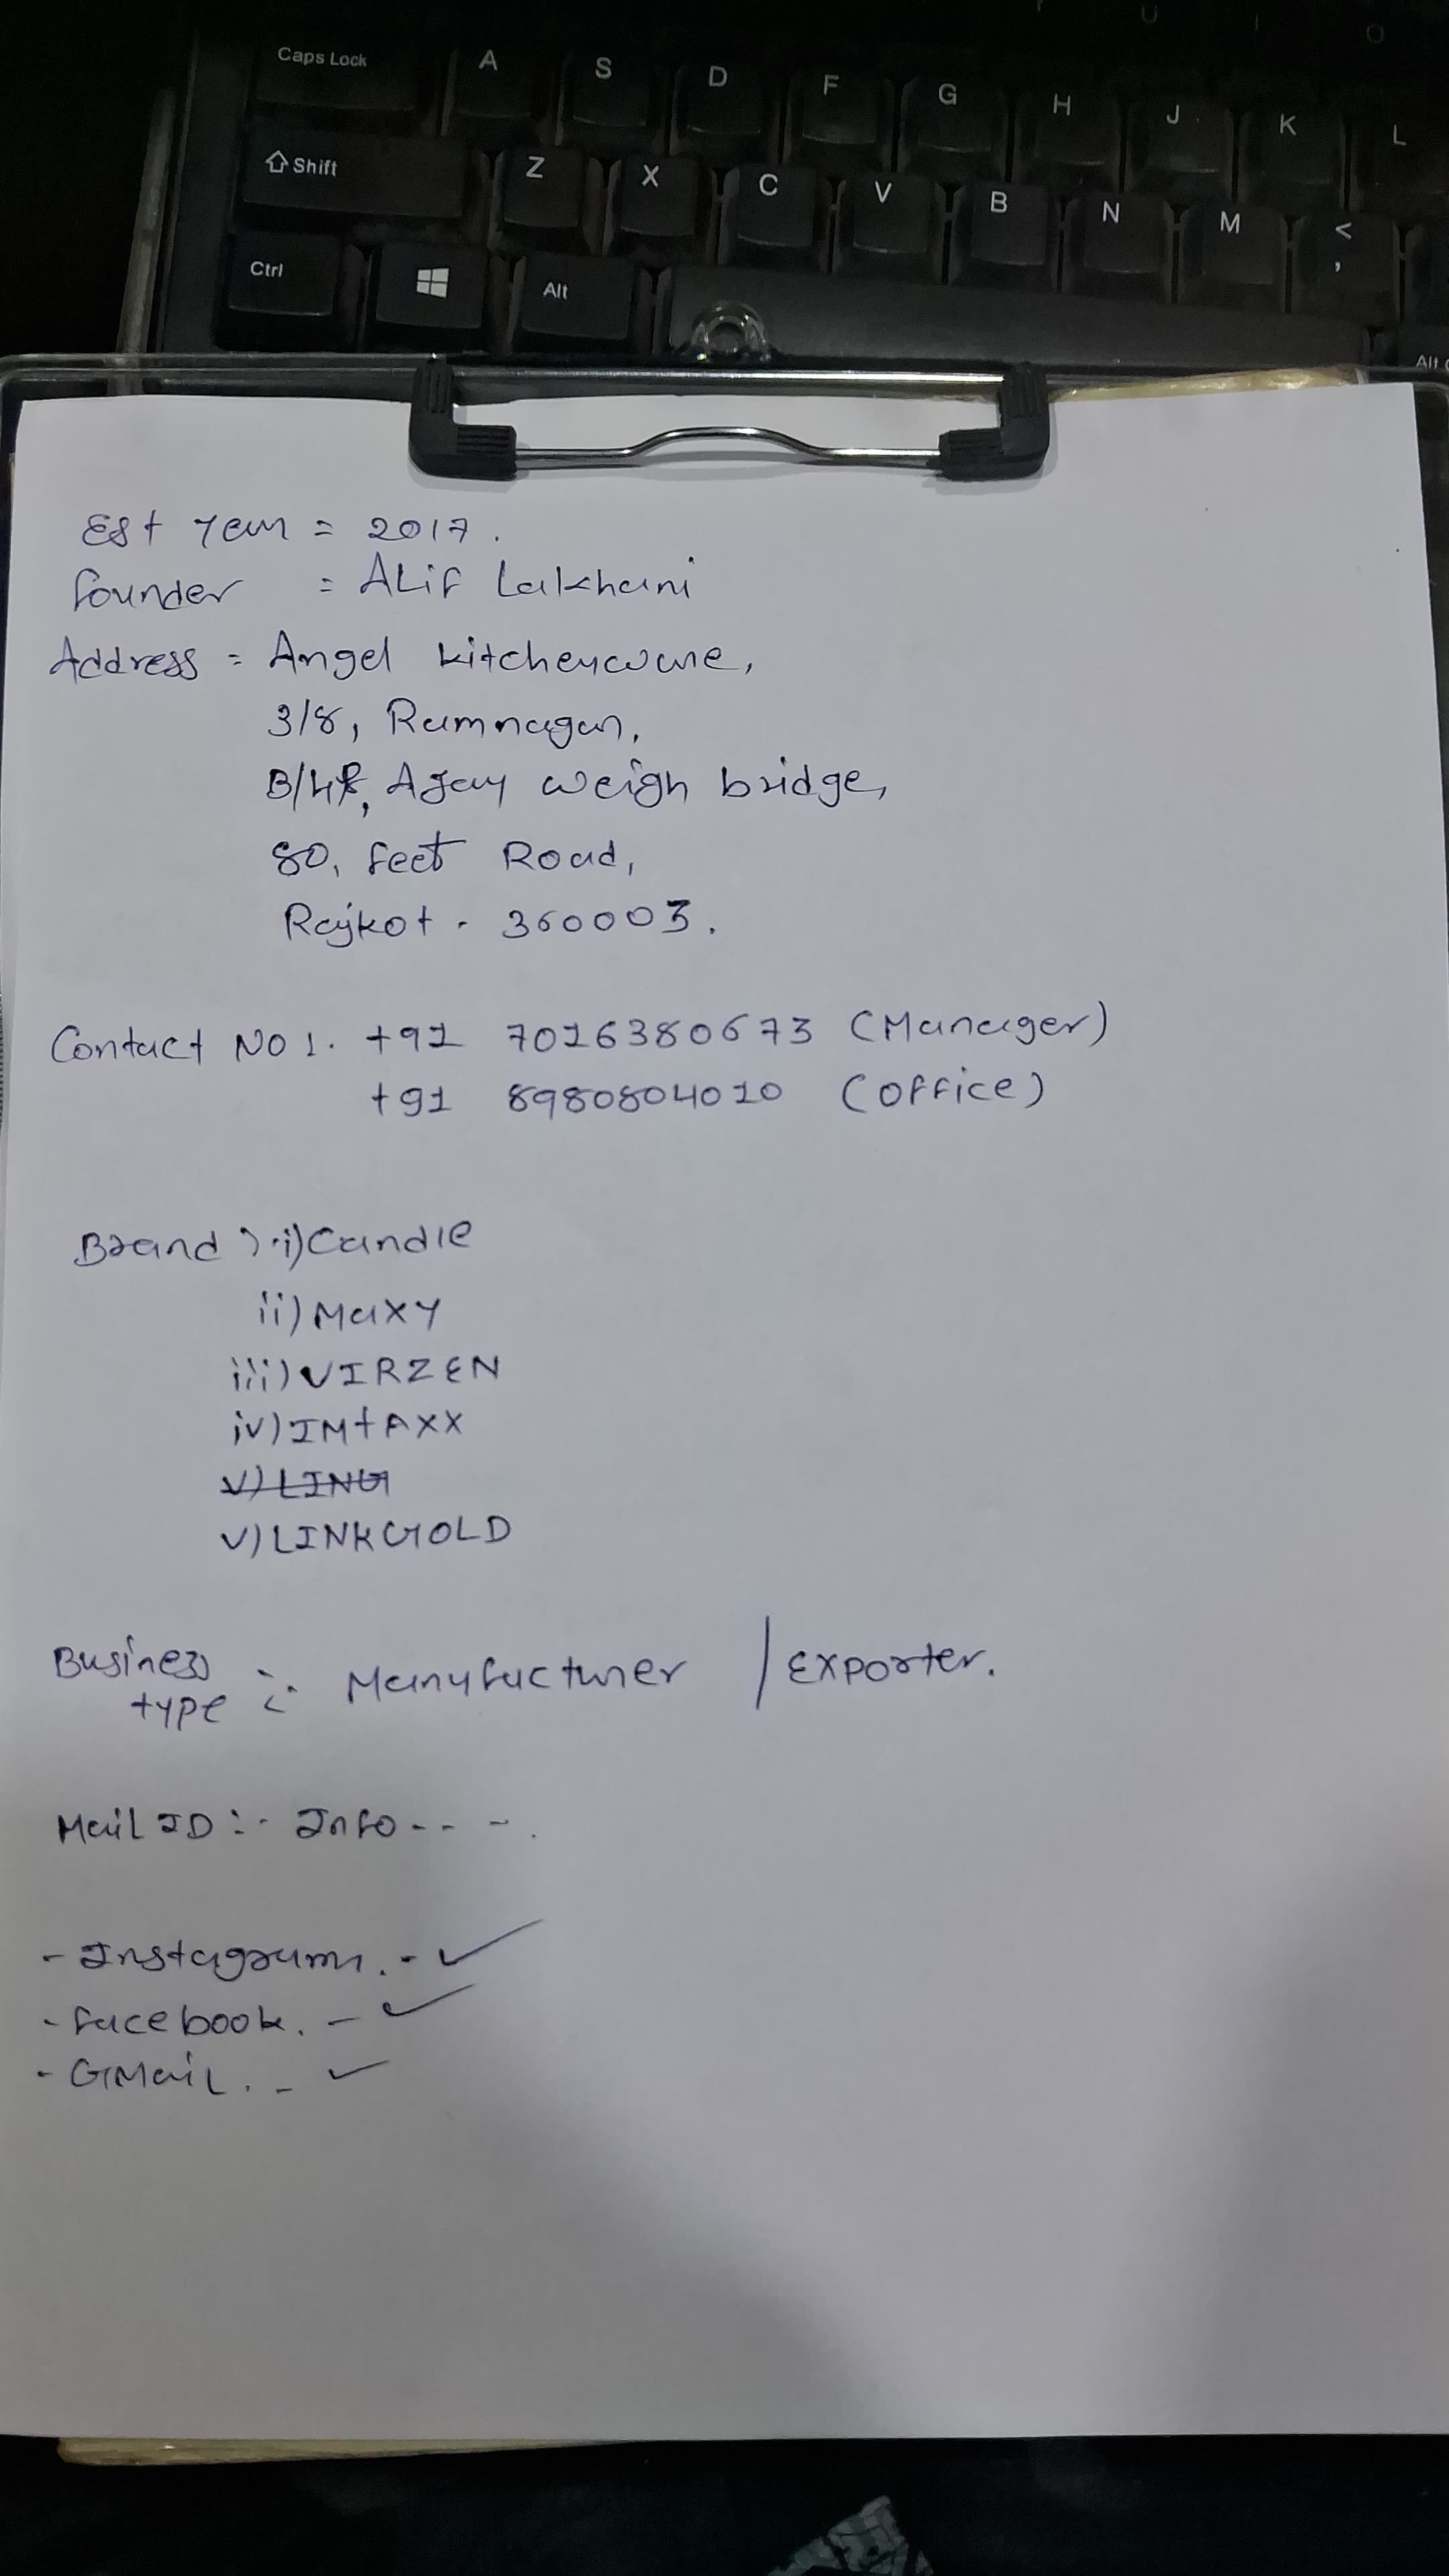 U I O
Caps Lock A S D F G H J K L
Shift Z X C V B N M < ,
Ctrl Alt Alt
Est Year = 2017.
founder = ALif Lakhani
Address = Angel kitchenware,
3/8, Ramnagar,
Ajay weigh bridge,
80, feet Road,
Rajkot - 360003.
Contact NO 1. +91 7016380673 (Manager)
+91 8980804010 (office)
Brand :- i) Candle
ii) Maxy
iii) VIRZEN
iv) IMtAXX
v) LING
v) LINKGOLD
Business :- Manufacturer / Exporter.
type
Mail ID :- Info -- - .
- Instagram. - ✓
- facebook. - ✓
- GMail. - ✓